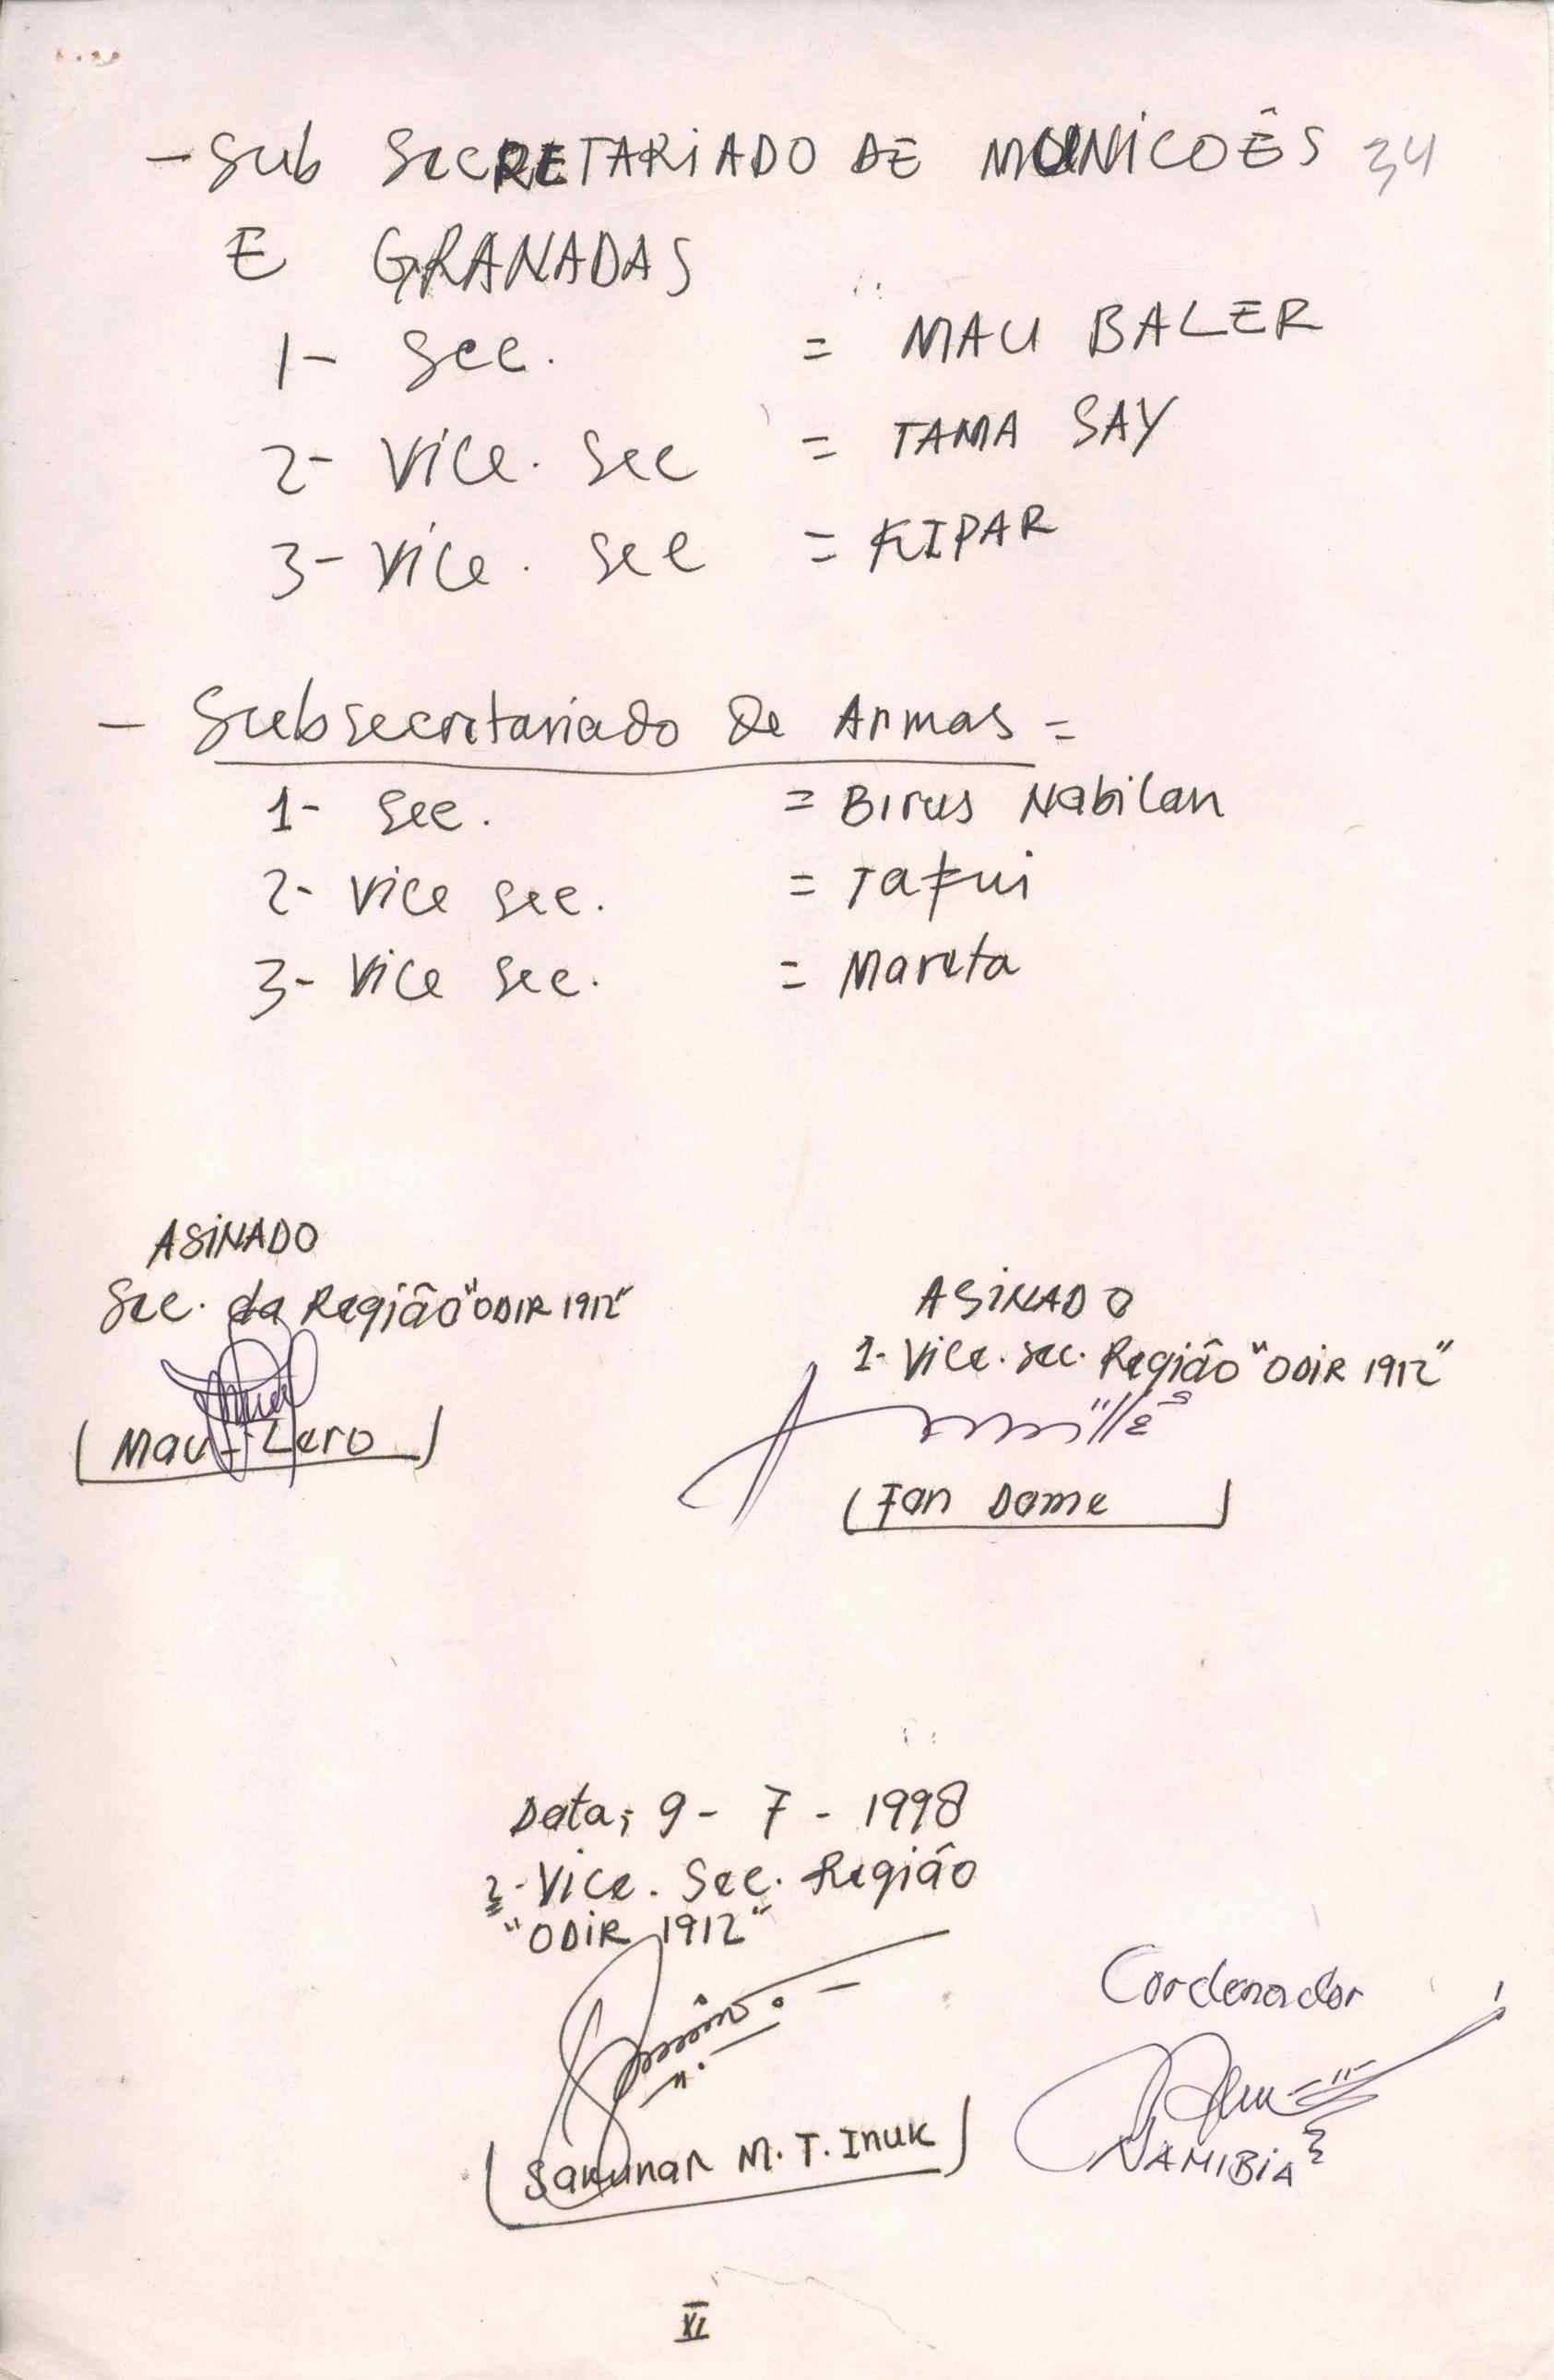 - Sub SecRETARiADO DE MUNiCOÊS 34
E GRANADAS
1- Sec. = MAU BALER
2- Vice. Sec = TAMA SAY
3- Vice. Sec = KIPAR
- Subsecretariado de Armas =
1- Sec. = Birus Nabilan
2- Vice Sec. = Tafui
3- Vice Sec. = Mareta
ASiNADO
Sec. da Região "ODIR 1912"
(Mau-Lero)
ASiNADO
1- Vice. sec. Região "ODiR 1912"
(Fan Dame)
Data; 9- 7 - 1998
2-Vice. Sec. Região
"ODiR 1912"
(Sakunar M.T. Inuk)
Cordenador
NAMIBiA
XI